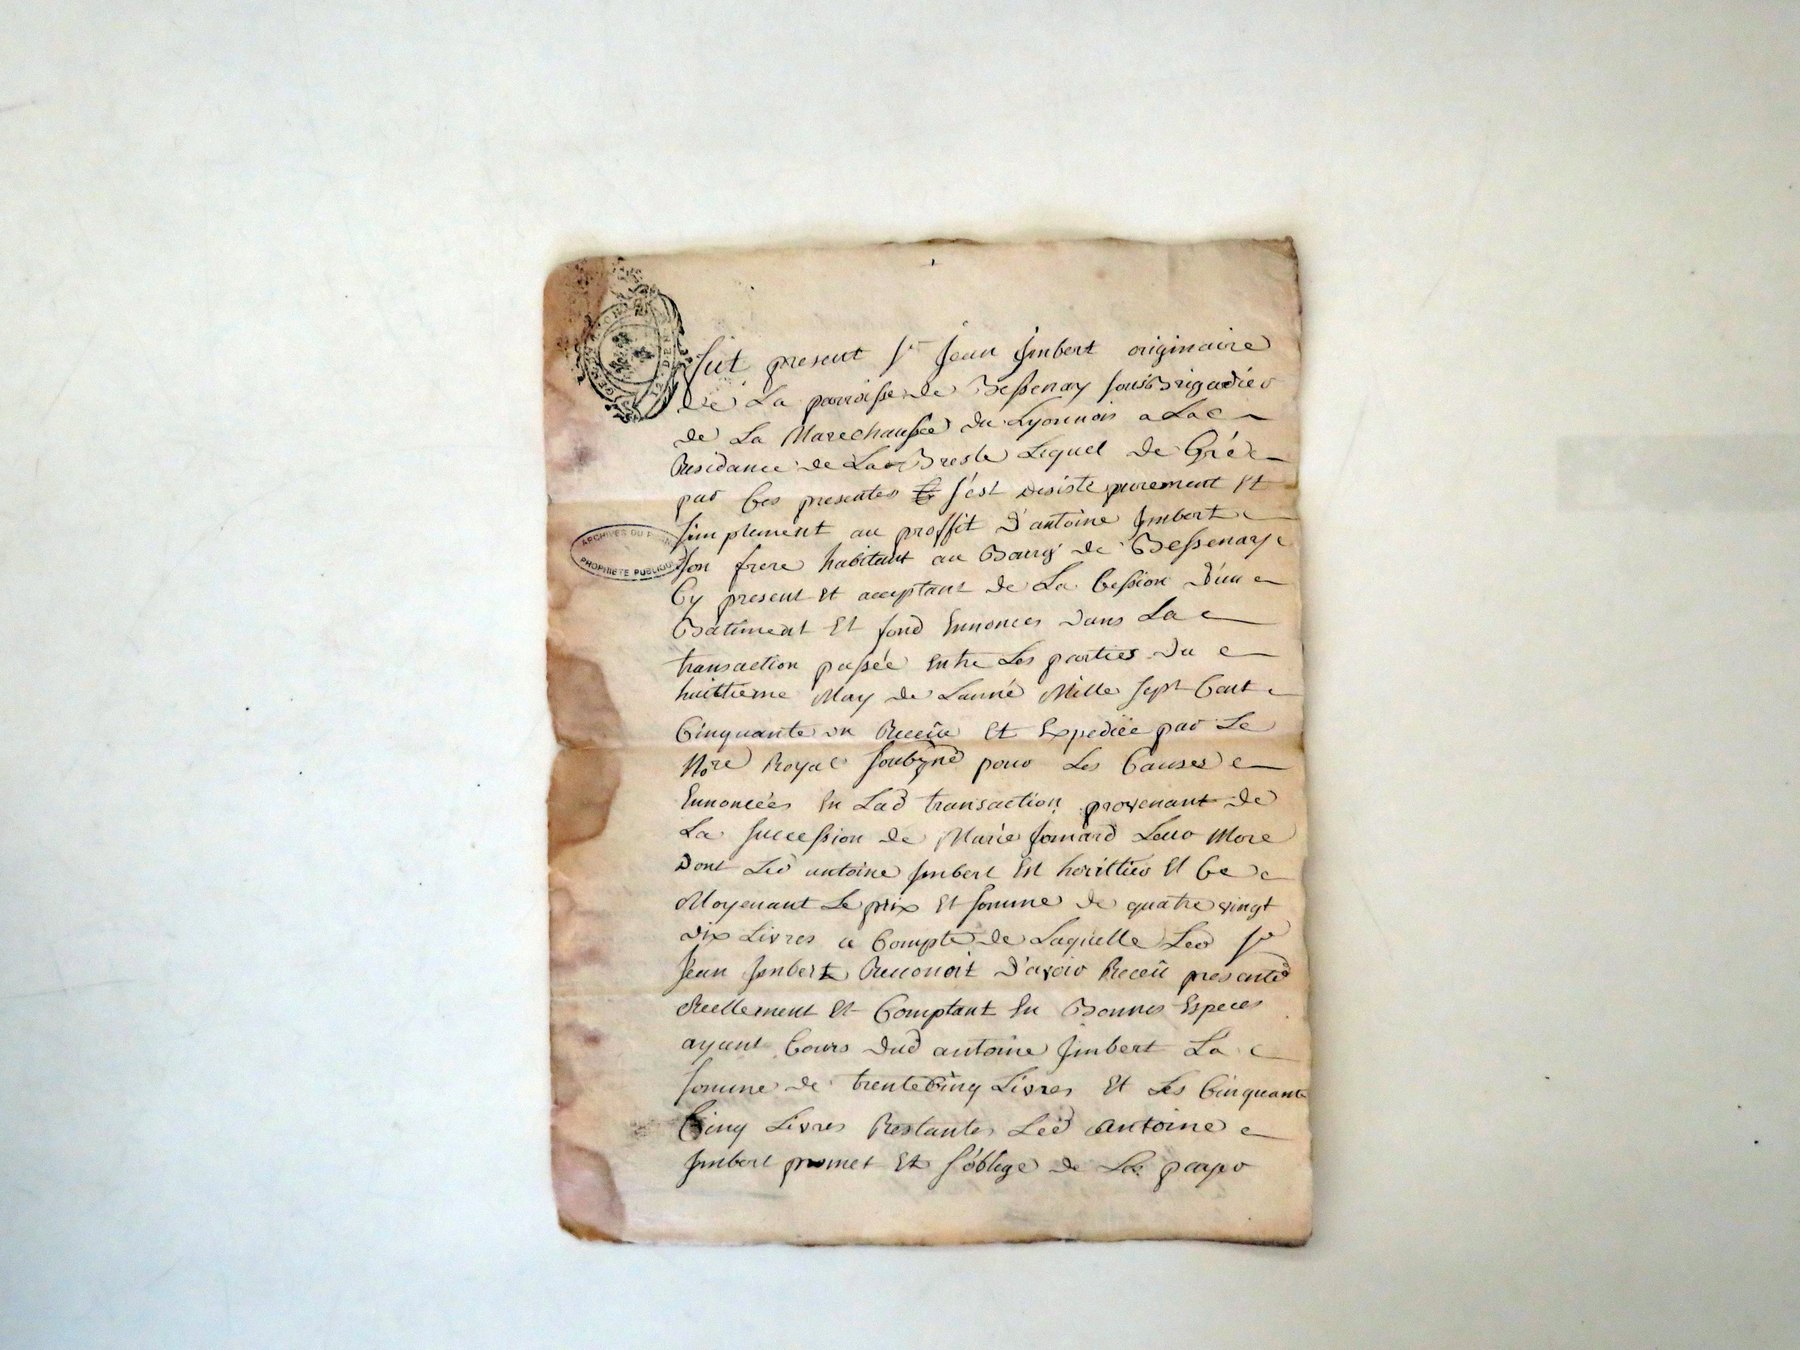 GEN
DEN
ARCHIVES DU
PROPRIETE PUBLIQUE
fut present Sr Jean Jmbert originaire
de La parroisse de Bessenay sous Brigadier
de La Marechaussée du Lyonnois a La
Residance de La Bresle Lequel de Gré
par Ces presentes s'est desisté purement Et
simplement au proffit D'antoine Jmbert
son frere habitant au Bourg de Bessenay
Cy present Et acceptant de La Cession D'un
Batiment Et fond Ennoncés dans La
transaction passée Entre Les parties du
huittieme May de Lanné Mille sept Cent
Cinquante un Receüe Et Expediée par Le
Nore Royal pour Les Causes
Ennoncées En Lad transaction provenant de
La succession de Marie Leur More
Dont Led antoine Jmbert Est herittier Et Ce
Moyenant Le prix Et somme de quatre vingt
dix Livres a Compte de Laquelle Led Sr
Jean Jmbert Reconoit D'avoir Receü
Reellement Et Comptant En Bonnes Especes
ayant Cours dud antoine Jmbert La
somme de trente Cinq Livres Et Les Cinquante
Cinq Livres Restantes Led antoine
Jmbert promet Et s'oblige de Les payer